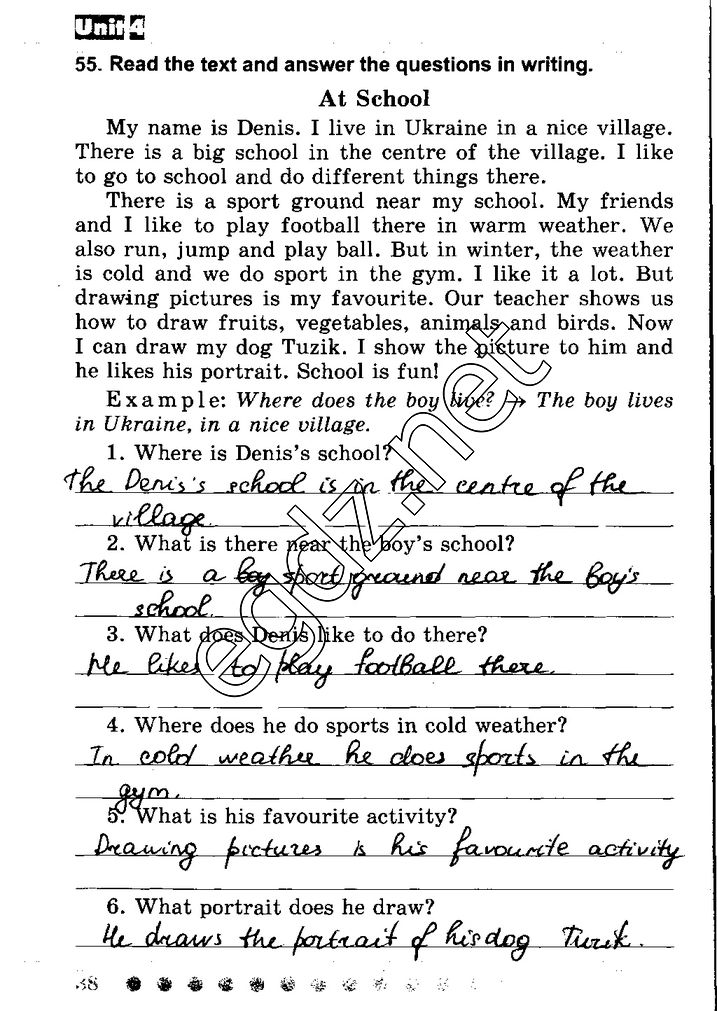 Unit 4
55. Read the text and answer the questions in writing.
At School
My name is Denis. I live in Ukraine in a nice village.
There is a big school in the centre of the village. I like
to go to school and do different things there.
There is a sport ground near my school. My friends
and I like to play football there in warm weather. We
also run, jump and play ball. But in winter, the weather
is cold and we do sport in the gym. I like it a lot. But
drawing pictures is my favourite. Our teacher shows us
how to draw fruits, vegetables, animals and birds. Now
I can draw my dog Tuzik. I show the picture to him and
he likes his portrait. School is fun!
Example: Where does the boy live? → The boy lives
in Ukraine, in a nice village.
1. Where is Denis's school?
The Denis's school is in the centre of the
village.
2. What is there near the boy's school?
There is a boy sport ground near the boy's
school.
3. What does Denis like to do there?
He likes to play football there.
4. Where does he do sports in cold weather?
In cold weather he does sports in the
gym.
5. What is his favourite activity?
Drawing pictures is his favourite activity
6. What portrait does he draw?
He draws the portrait of his dog Tuzik.
38
egdz.net